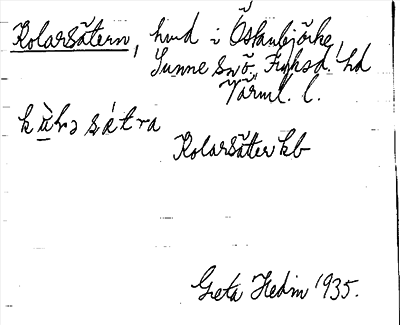 Kolarsätern, hmd i Östanbjörke,
Sunne sn ö. Fryksd. hd
Värml. l.
kὼlɿə sátra
Kolarsätter kb
Greta Hedin 1935.